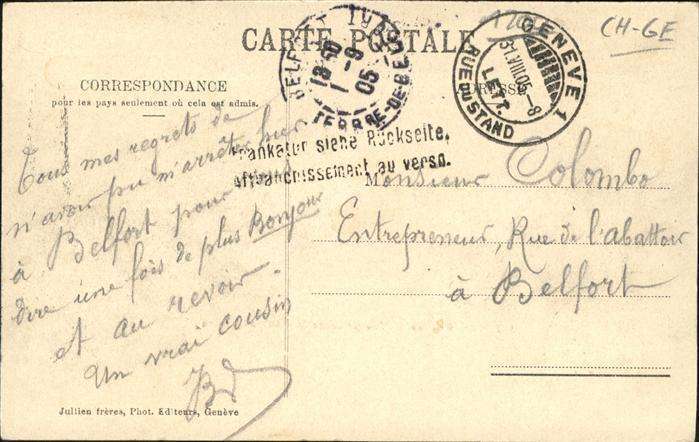 CARTE POSTALE
120
CH-GE
CORRESPONDANCE
pour les pays seulement où cela est admis.
BELFORT
18 30
1 -9
05
TERRRE-DE-BELFORT
GENÈVE 1
31.VIII.05.-8
LETT.
RUE DU STAND
Frankatur siehe Rückseite.
Affranchissement au verso.
Tous mes regrets de
n'avoir pu m'arrêter hier
à Belfort pour
dire une fois de plus Bonjour
et au revoir.
Un vrai cousin
Monsieur Colombo
Entrepreneur, Rue de l'abattoir
à Belfort
Jullien frères, Phot. Editeurs, Genève